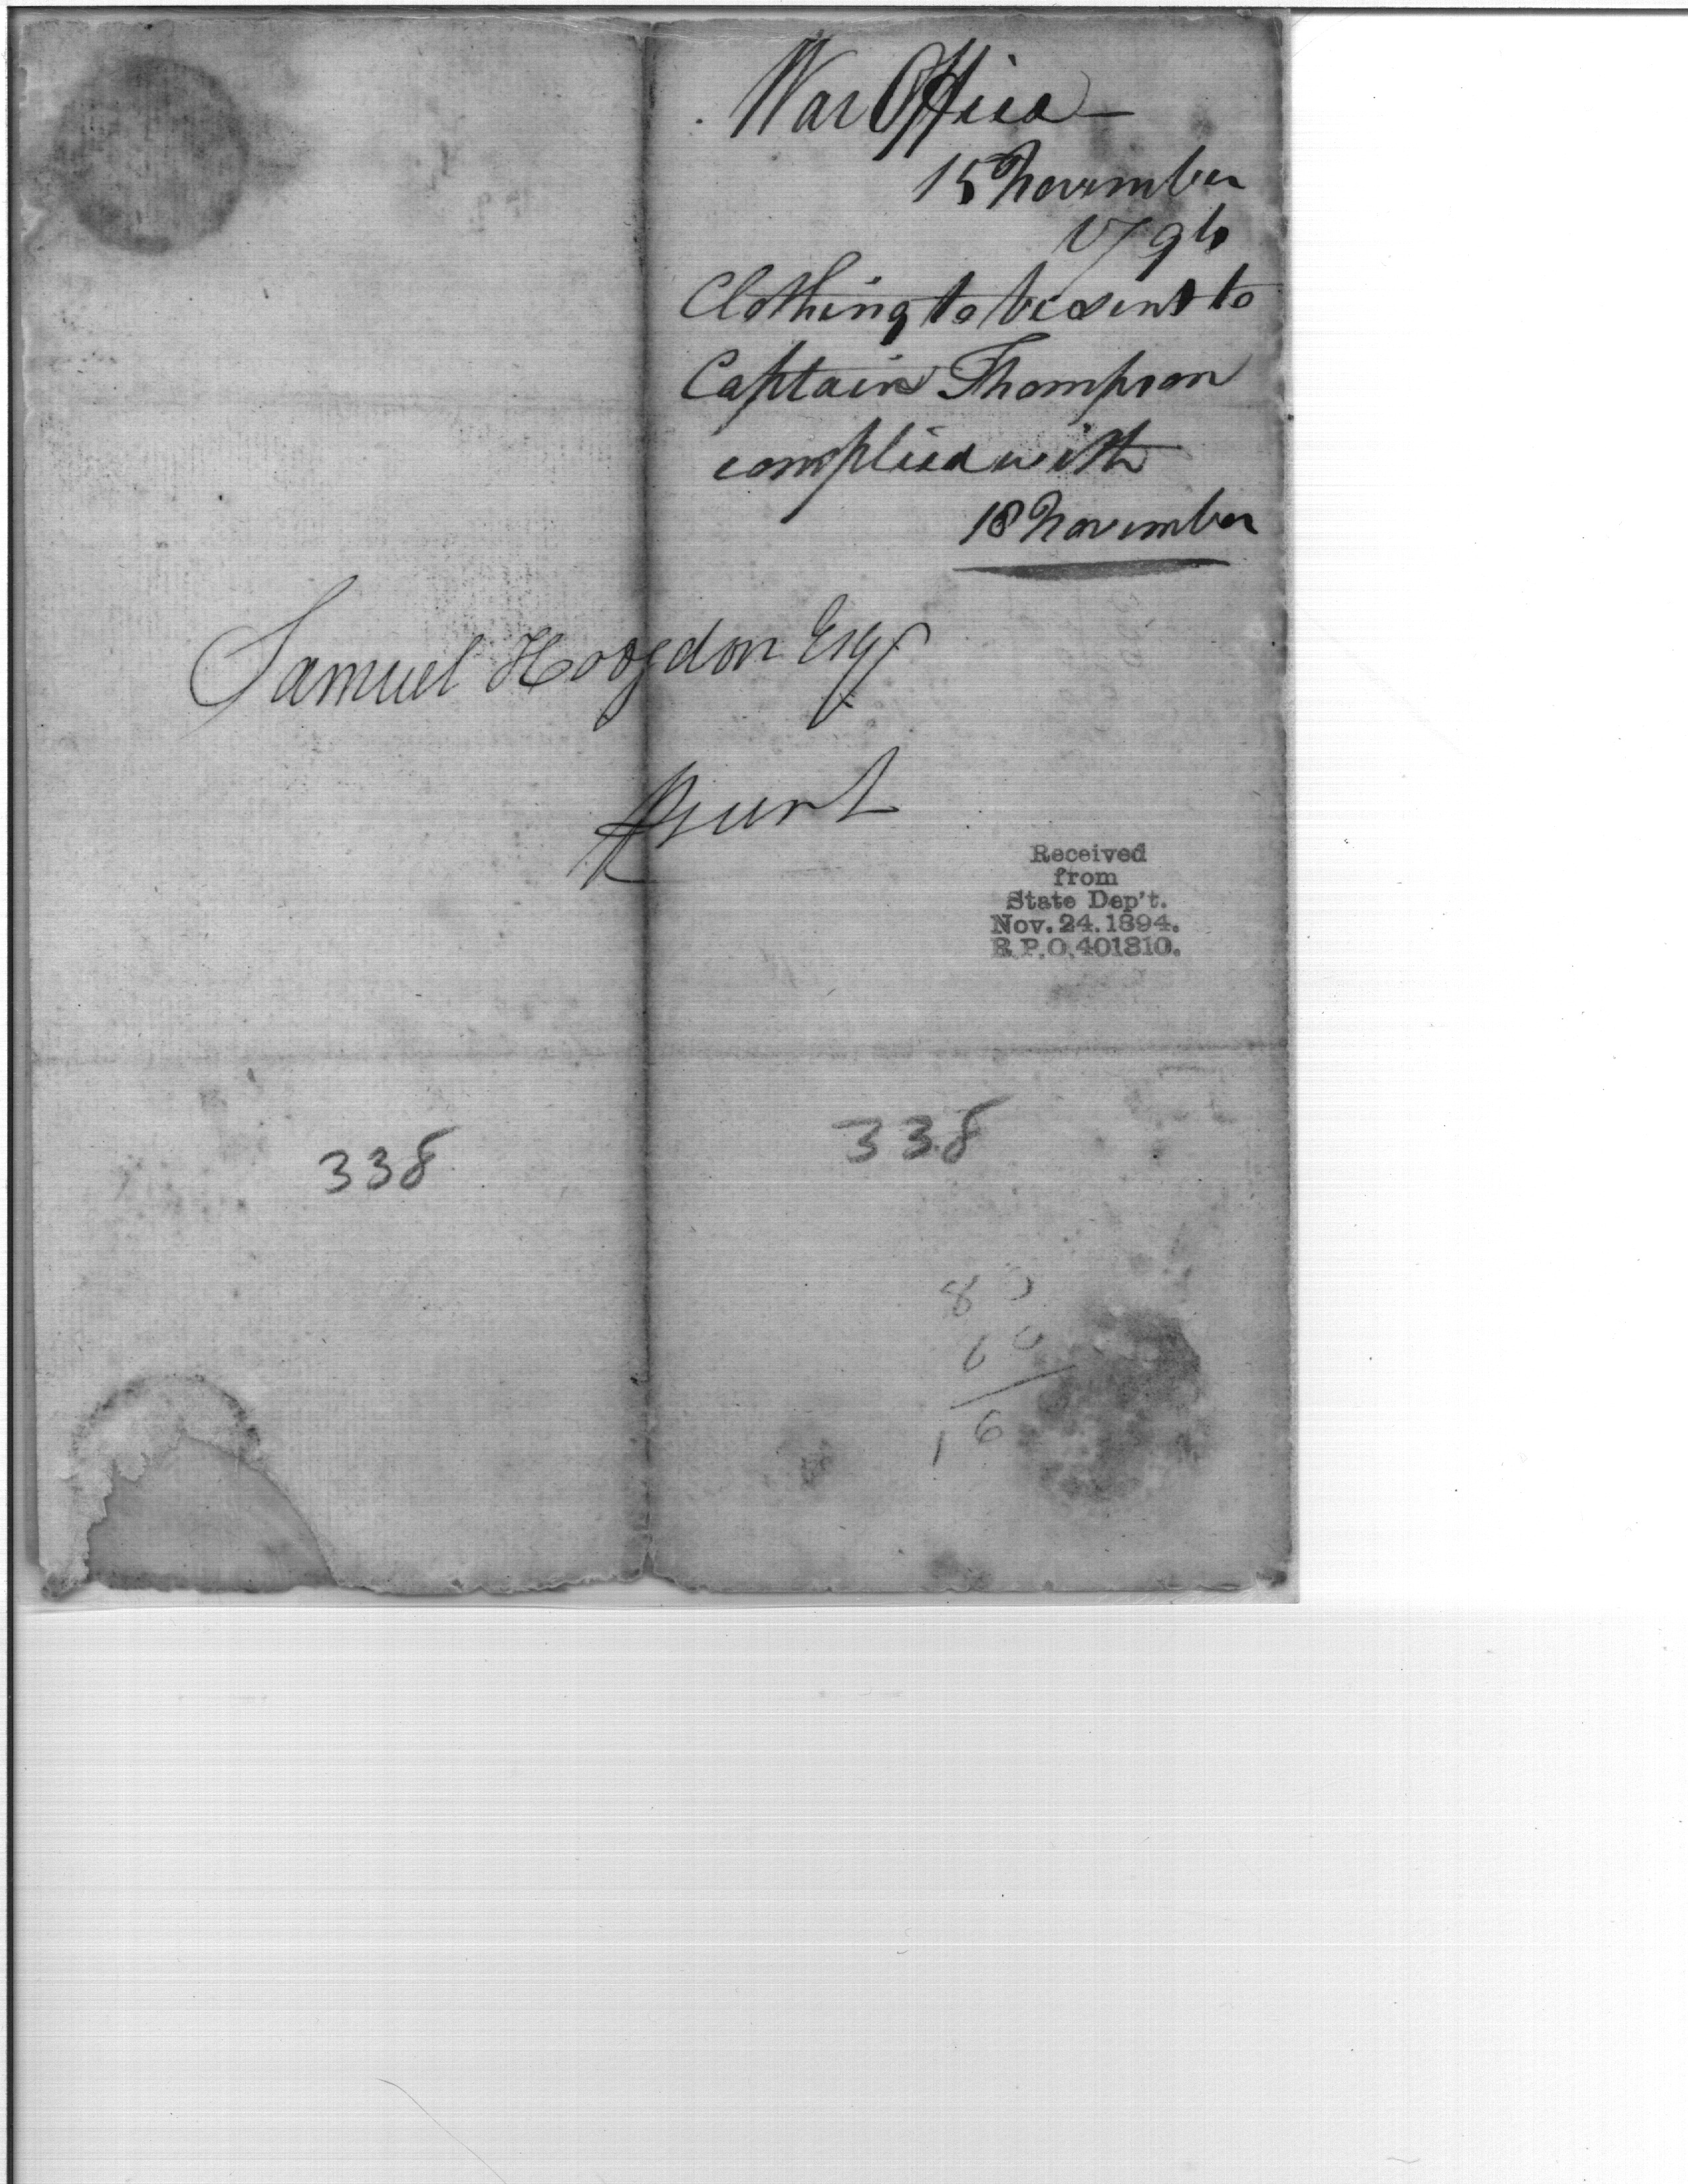 War Office
15 November
1796
Clothing to be sent to
Captain Thompson
complied with
18 November
Samuel Hodgdon Esqr
Present
Received
from
State Dep't.
Nov. 24. 1894.
R.P.O. 401810.
338
338
8
6
1 6